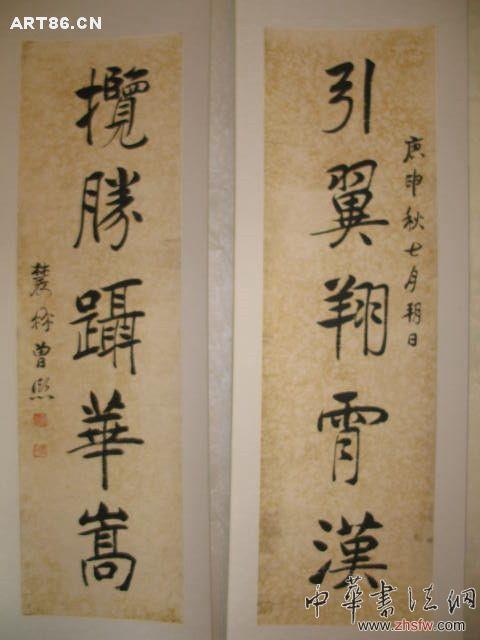 ART86.CN
引翼翔霄漢
庚申秋七月朔日
攬勝躡華嵩
農髯曾熙
中華書法網
www.zhsfw.com